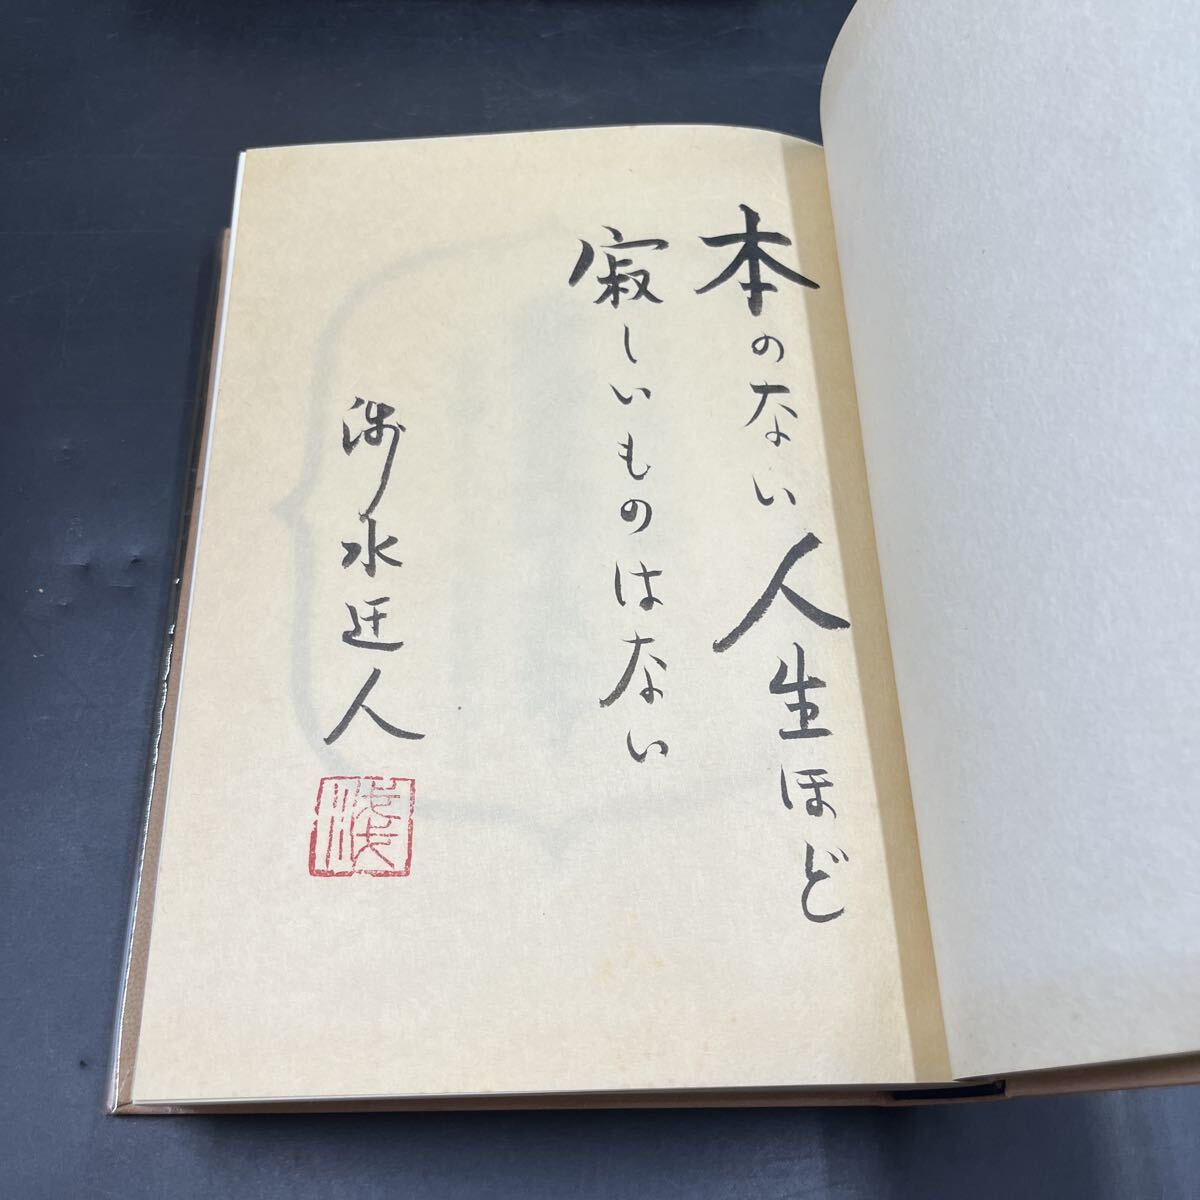 本のない人生ほど
寂しいものはない
浅水迂人